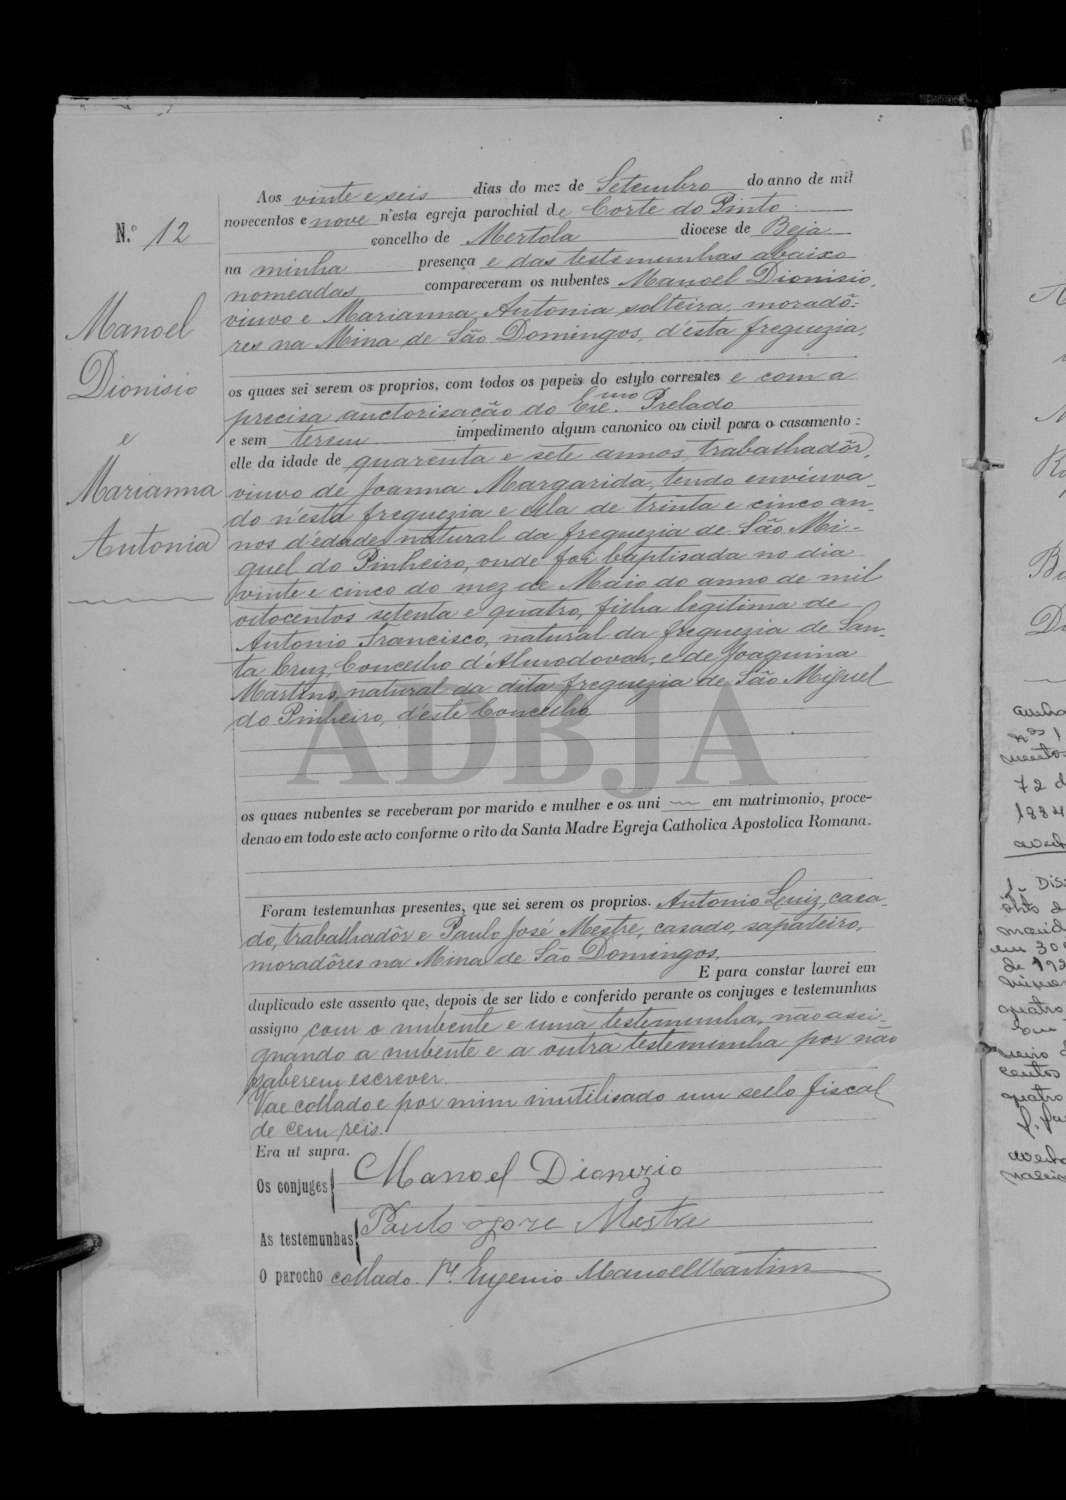 Aos vinte e seis dias do mez de Setembro do anno de mil
novecentos e nove n'esta egreja parochial de Corte do Pinto
concelho de Mertola diocese de Beja
na minha presença e das testemunhas abaixo
nomeadas compareceram os nubentes Manoel Dionisio,
viuvo e Marianna Antonia solteira, moradô-
res na Mina de São Domingos, d'esta freguezia,
os quaes sei serem os proprios, com todos os papeis do estylo correntes e com a
precisa auctorisacão do Exc.mo Prelado
e sem terem impedimento algum canonico ou civil para o casamento:
elle da idade de quarenta e sete annos, trabalhadôr,
viuvo de Joanna Margarida, tendo enviuva-
do n'esta freguezia e ella de trinta e cinco an-
nos d'edade, natural da freguezia de São Mi-
guel do Pinheiro, onde foi baptisada no dia
vinte e cinco do mez de Maio do anno de mil
oitocentos setenta e quatro, filha legitima de
Antonio Francisco, natural da freguezia de San-
ta Cruz, Concelho d'Almodovar, e de Joaquina
Martins, natural da dita freguezia de São Miguel
do Pinheiro, d'este Concelho,
os quaes nubentes se receberam por marido e mulher e os uni em matrimonio, proce-
denao em todo este acto conforme o rito da Santa Madre Egreja Catholica Apostolica Romana.
Foram testemunhas presentes, que sei serem os proprios. Antonio Luiz, casa-
do, trabalhadôr e Paulo José Mestre, casado, sapateiro,
moradôres na Mina de São Domingos,
E para constar lavrei em
duplicado este assento que, depois de ser lido e conferido perante os conjuges e testemunhas
assigno com o nubente e uma testemunha, não assi-
gnando a nubente e a outra testemunha por não
saberem escrever.
Vae collado e por mim inutilisado um sello fiscal
de cem reis.
Era ut supra.
Os conjuges Manoel Dionizio
As testemunhas Paulo Mestre
O parocho collado P.e Eugenio Manoel Martins
N.º 12
Manoel
Dionisio
e
Marianna
Antonia
ADBJA